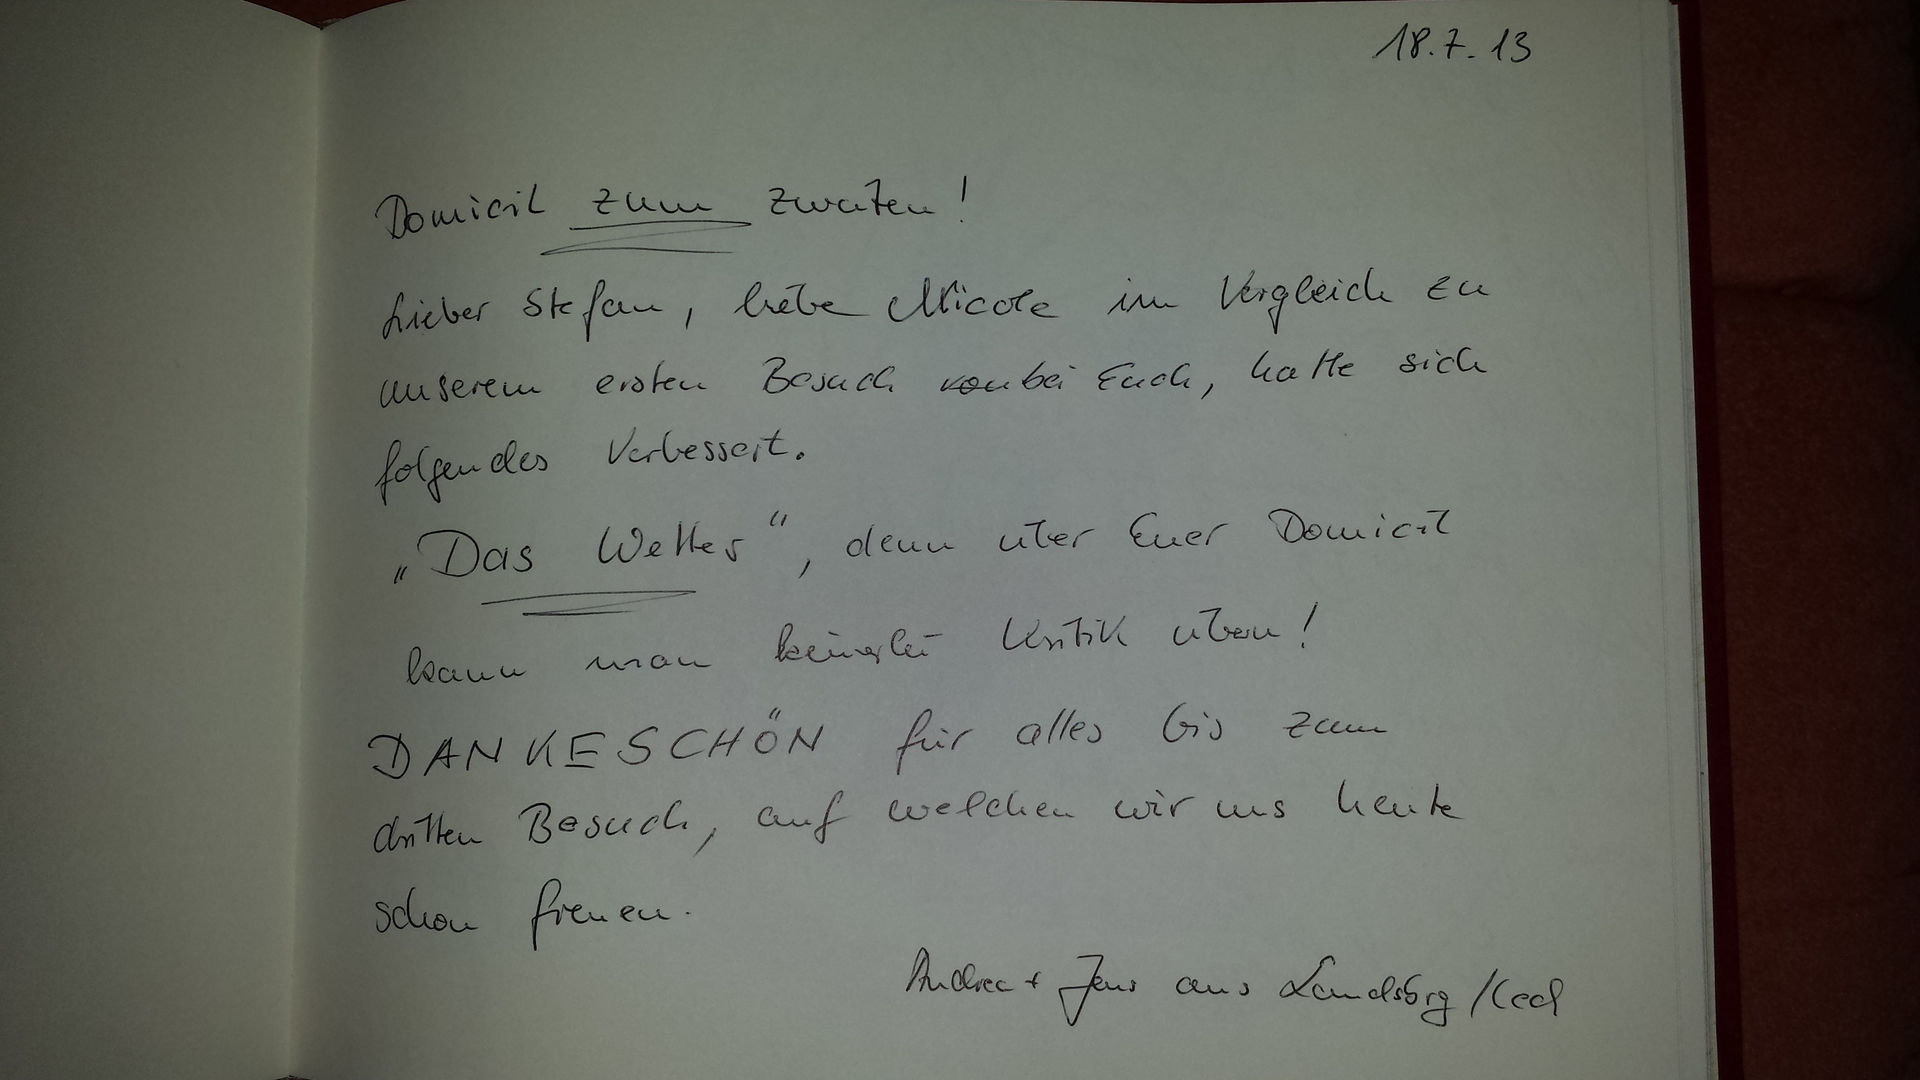 18.7.13
Domicil zum zweiten!
Lieber Stefan, liebe Nicole im Vergleich zu
unserem ersten Besuch von bei Euch, hatte sich
folgendes Verbessert.
„Das Wetter“, denn über Euer Domicil
kann man keinerlei Kritik üben!
DANKESCHÖN für alles bis zum
dritten Besuch, auf welchen wir uns heute
schon freuen.
Andrea + Jens aus Landsbrg/Lech